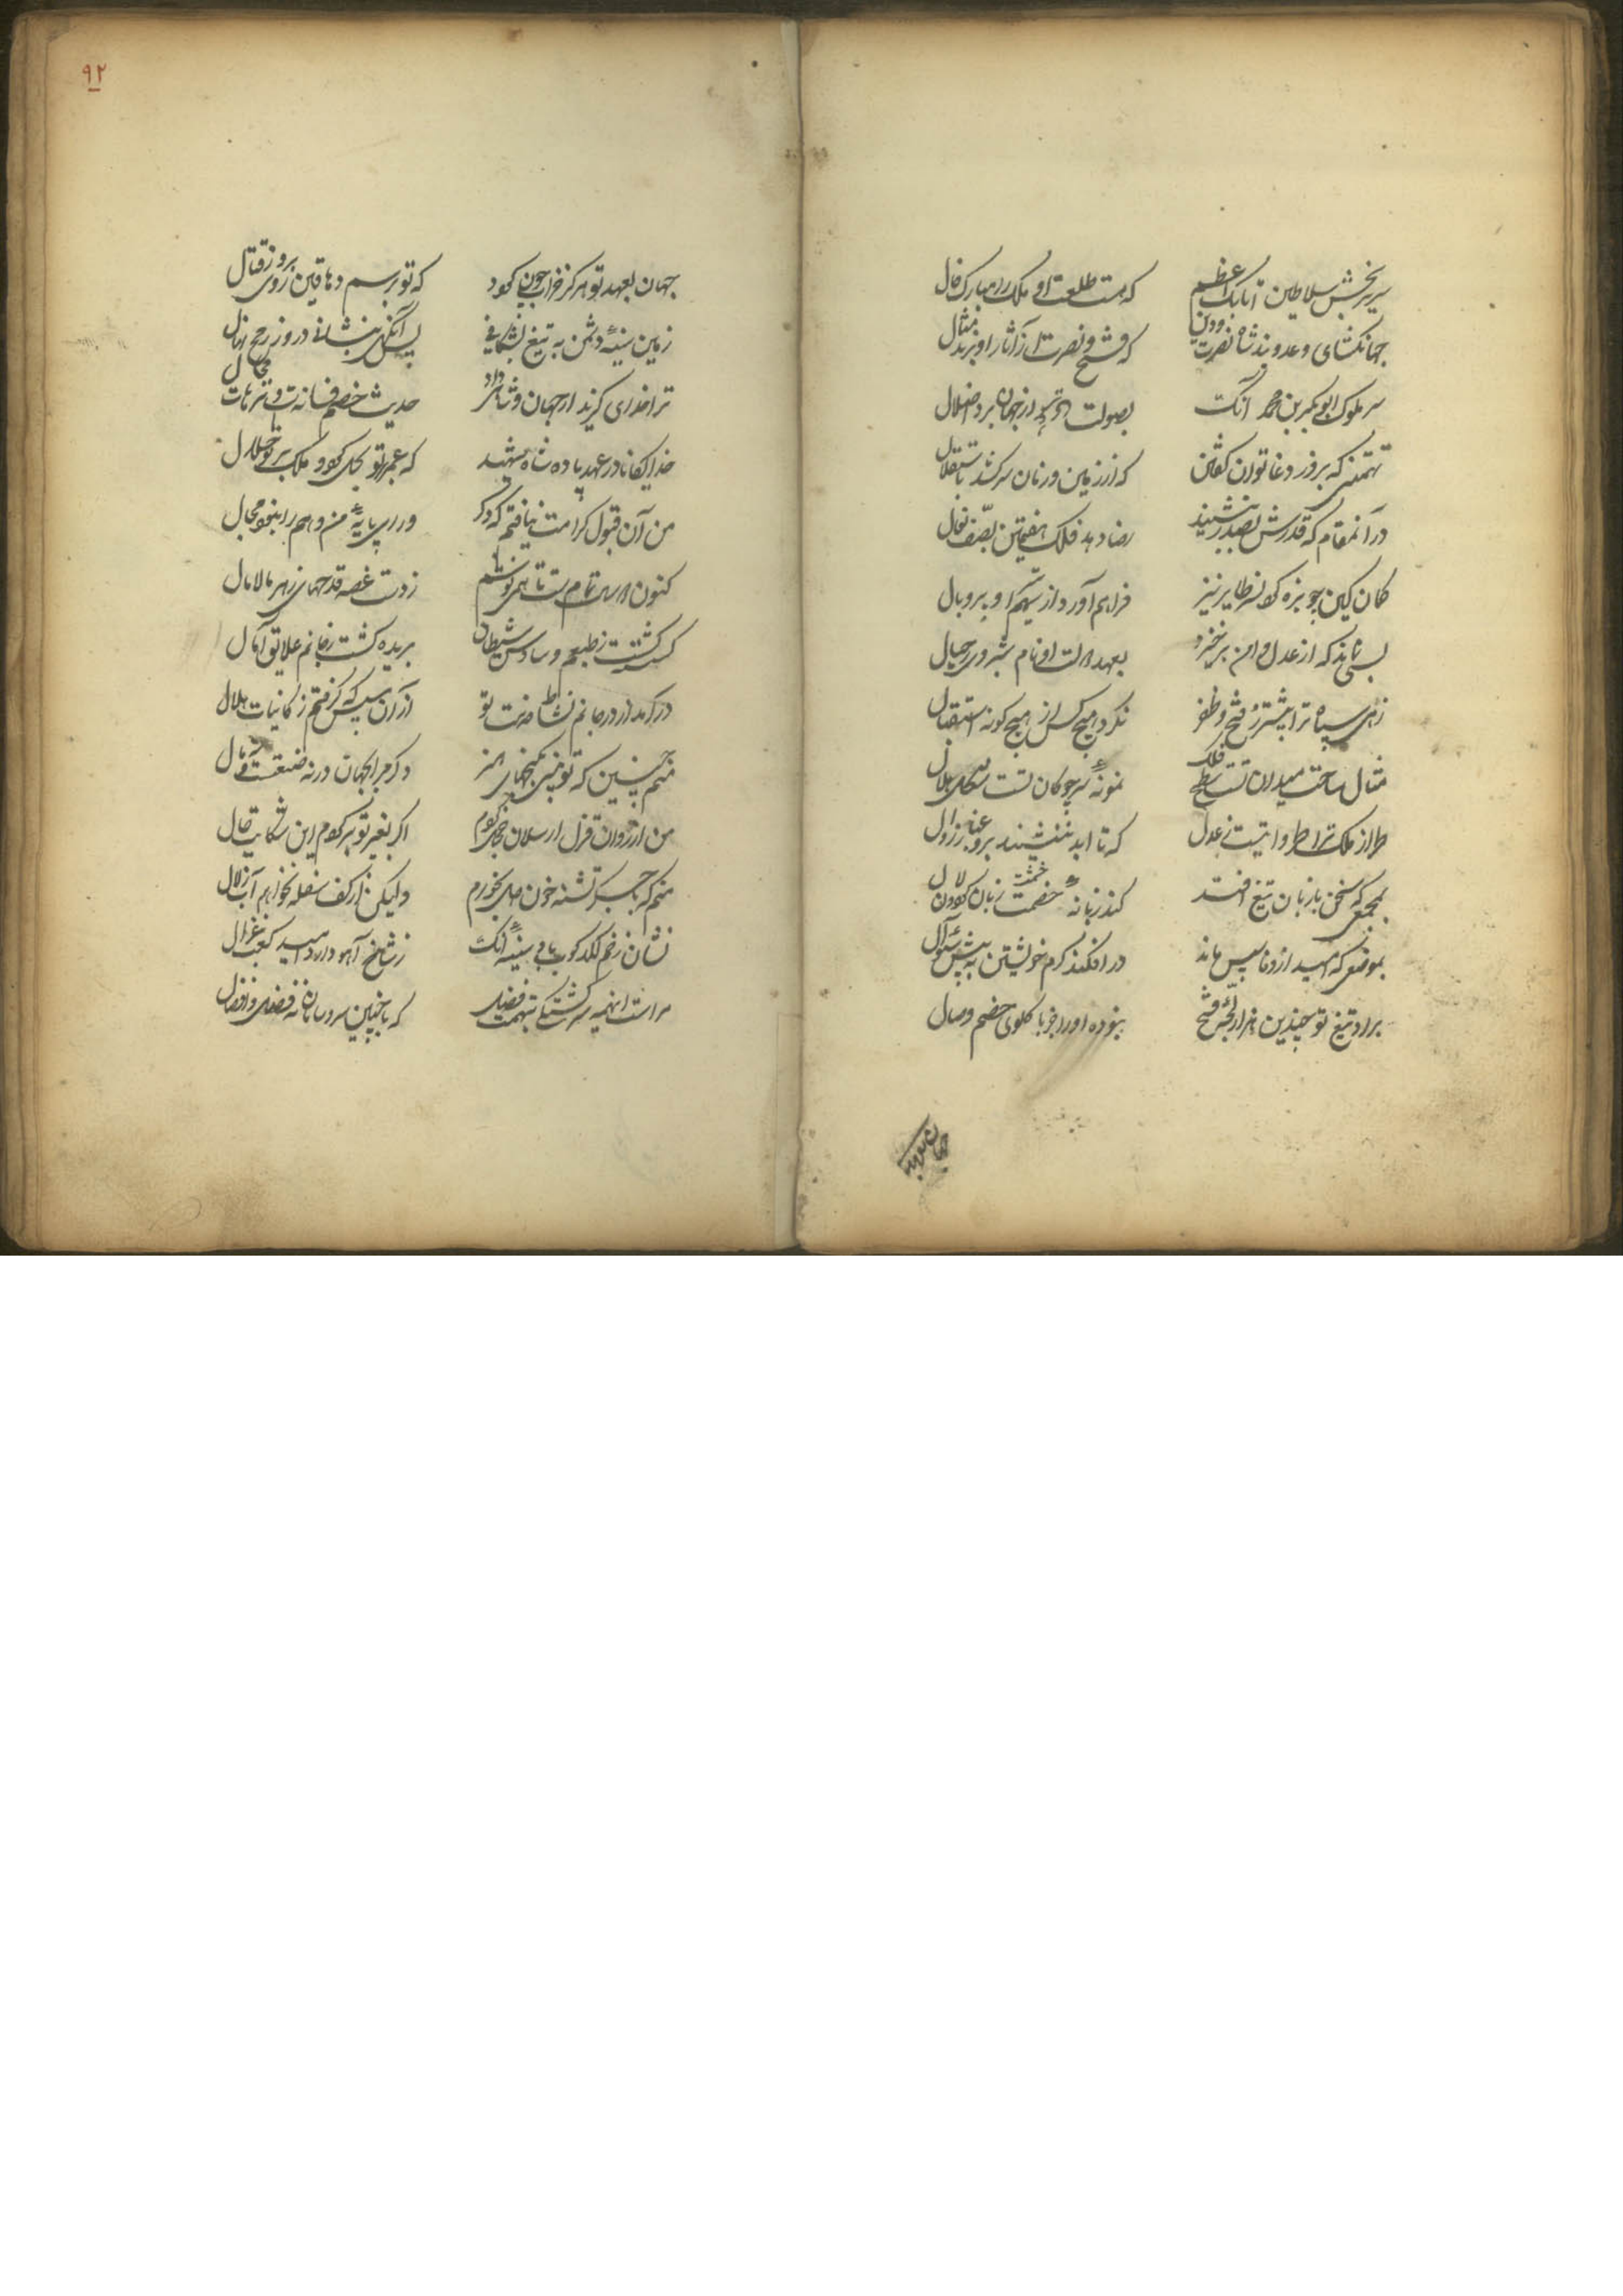 سریربخش سلاطین اتابک اعظم که هست طلعت او ملک را مبارک فال
جهانگشای و عدوبند شاه نصرت دین که فتح و نصرت از آثار او برند مثال
سر ملوک ابوبکر بن محمد آنک بصولت از جهان برد اضلال
تهمتنی که بروز وغا توان گفتن که از زمین و زمان سرکشد باستقلال
در آن مقام که قدرش بصدر بنشیند رضا دهد فلک هفتمین بصف نعال
کمان کین چو بزه کرد نسر طایر نیز فراهم آورد از سهم او پر و بال
بسی نماند که از عدل و امن برخیزد بعهد دولت او نام شبروی ز خیال
زهی سپاه ترا پیشتر ز فتح و ظفر نکرده هیچ کس از هیچ گونه استقبال
مثال ساحت میدان تست سطح فلک نمونه سر چوگان تست شکل هلال
طراز ملک ترا طراوتیست ز عدل که تا ابد ننشیند برو غبار زوال
بمجمعی که سخن با زبان تیغ افتد کند زبانه خشمت زبان گردون لال
بموضعی که امید از وفا بپس ماند در افکند کرم خویشتن به پیش سئوال
براد تیغ تو چندین هزار بچه فتح نبوده او را جز با گلوی خصم وصال
جهان بعهد
۹۲
جهان بعهد تو هرگز خراب چون گردد که تو برسم دهاقین ز روی روز قتال
زمین سینه دشمن به تیغ بشکافی پس آنگهی بنشانی درو ز رمح نهال
ترا خدای گزید از جهان و شاهی داد حدیث خصم فسانه ست و ترهات محال
خدایگانا در عهد پادشاه شهید که عمر تو بجای او و ملک بر تو حلال
من آن قبول کرامت نیافتم که دگر ورای پایه من وهم را نبود مجال
کنون دو سال تمام ست تا همی نوشم ز دست غصه قدحهای زهر مالامال
گسسته گشت ز طبعم وساوس شیطان بریده گشت ز جانم علایق آمال
درآمد از در جانم نشاط خدمت تو از آن سپس که گرفتم ز کاینات ملال
منم چنین که تو می بینی گنجهای هنر وگر مرا بجهان در نه ضیعتست و نه مال
من از زوان قزل ارسلان خجل گردم اگر بغیر تو برگویم این شکایت حال
منم که با جگر تشنه خون دل بخورم ولیکن از کف سفله نخواهم آب زلال
نشان زخم لگدکوب یافت سینه آنک ز شاخ آهو دارد امید کعب غزال
مراست اینهمه سرگشتگی بتهمت فضل که با چنین سر و سامان نه فضل و نه افضال